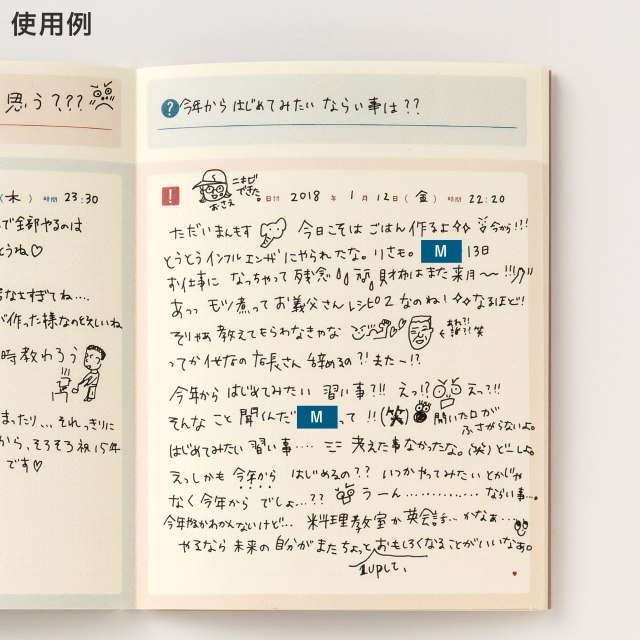 使用例
思う???
(木) 時間 23:30
で全部やるのは
とうね♡
すぎてね…
作った様なのとえいね
時教わろう
まったり…それっきりに
から、そろそろ祝15年
です♡
? 今年から はじめてみたい ならい事は??
! ニキビできた。 おさえ 日付 2018 年 1月 12日 (金) 時間 22:20
ただいまんもす 今日こそは ごはん 作るよ 今から!!!
とうとうインフルエンザ にやられたな。りさも。 M 13日
お仕事に なっちゃって 残念 財布はまた来月〜 !!!
あっ モツ煮って お義父さん レシピ2 なのね! なるほど!
そりゃあ 教えてもらわなきゃな ←あれ?! 誰?!笑
ってか 代々なの 店長さん 辞めるの?! また一!?
今年から はじめてみたい 習い事?!! えっ!? えっ?!!
そんな こと 聞くんだ M って !! (笑) 開いた口が ふさがらないよ。
はじめてみたい 習い事…… 考えた事なかったな。(笑) どーしよ。
えっしかも 今年から はじめるの?? いつか やってみたい とかじゃ
なく 今年から でしょ…?? うーん…………… ならい事…。
今年なかわかんないけど… 料理教室か 英会話…かなぁ…
やるなら 未来の 自分が またちょっと おもしろくなることがいいなぁ。
1upして、